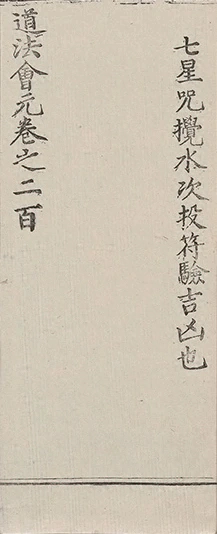 七星咒攪水次投符驗吉凶也
道法會元卷之二百